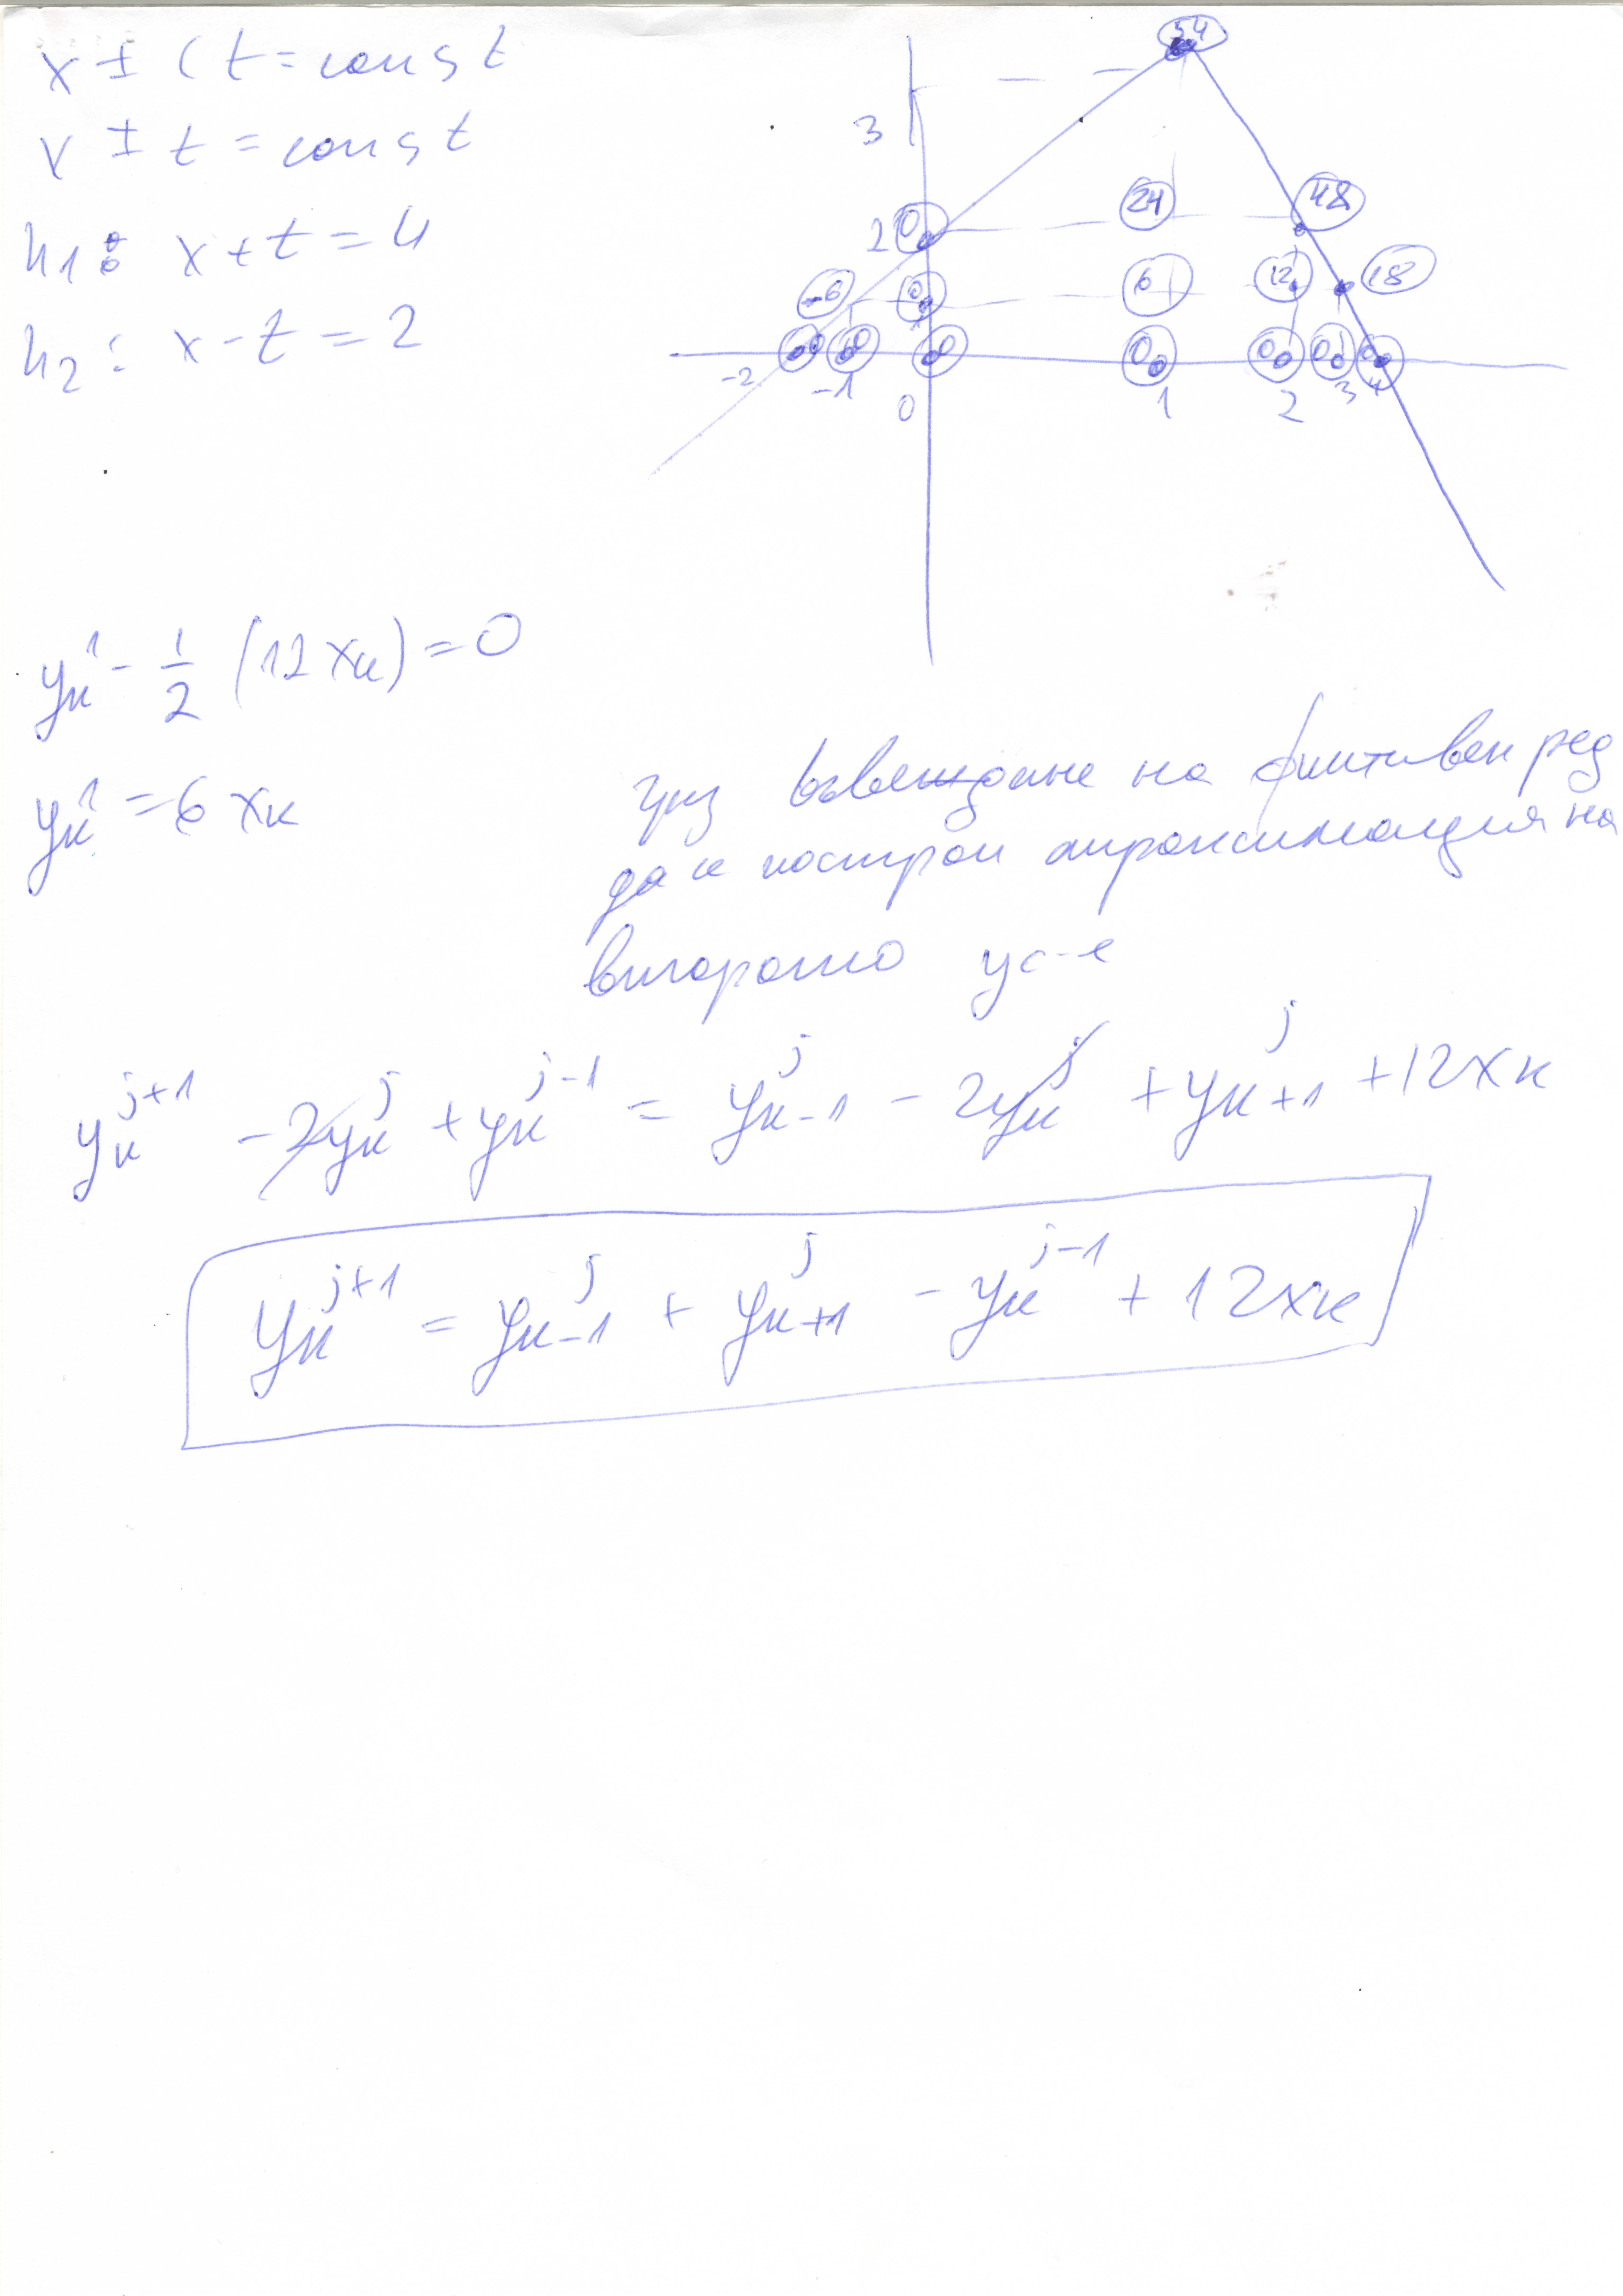 x ± ct = const
x ± t = const
h₁: x + t = 4
h₂: x - t = 2
54
3
24
48
2
0
-6
0
1
6
12
18
0
0
0
0
0
0
0
-2
-1
0
1
2
3
4
yₖ¹ - 1/2 (12xₖ) = 0
yₖ¹ = 6xₖ
чрез въвеждане на фиктивен ред
да се построи апроксимация на
второто ус-е
yₖʲ⁺¹ - 2yₖʲ + yₖʲ⁻¹ = yₖ₋₁ʲ - 2yₖʲ + yₖ₊₁ʲ + 12xₖ
yₖʲ⁺¹ = yₖ₋₁ʲ + yₖ₊₁ʲ - yₖʲ⁻¹ + 12xₖ